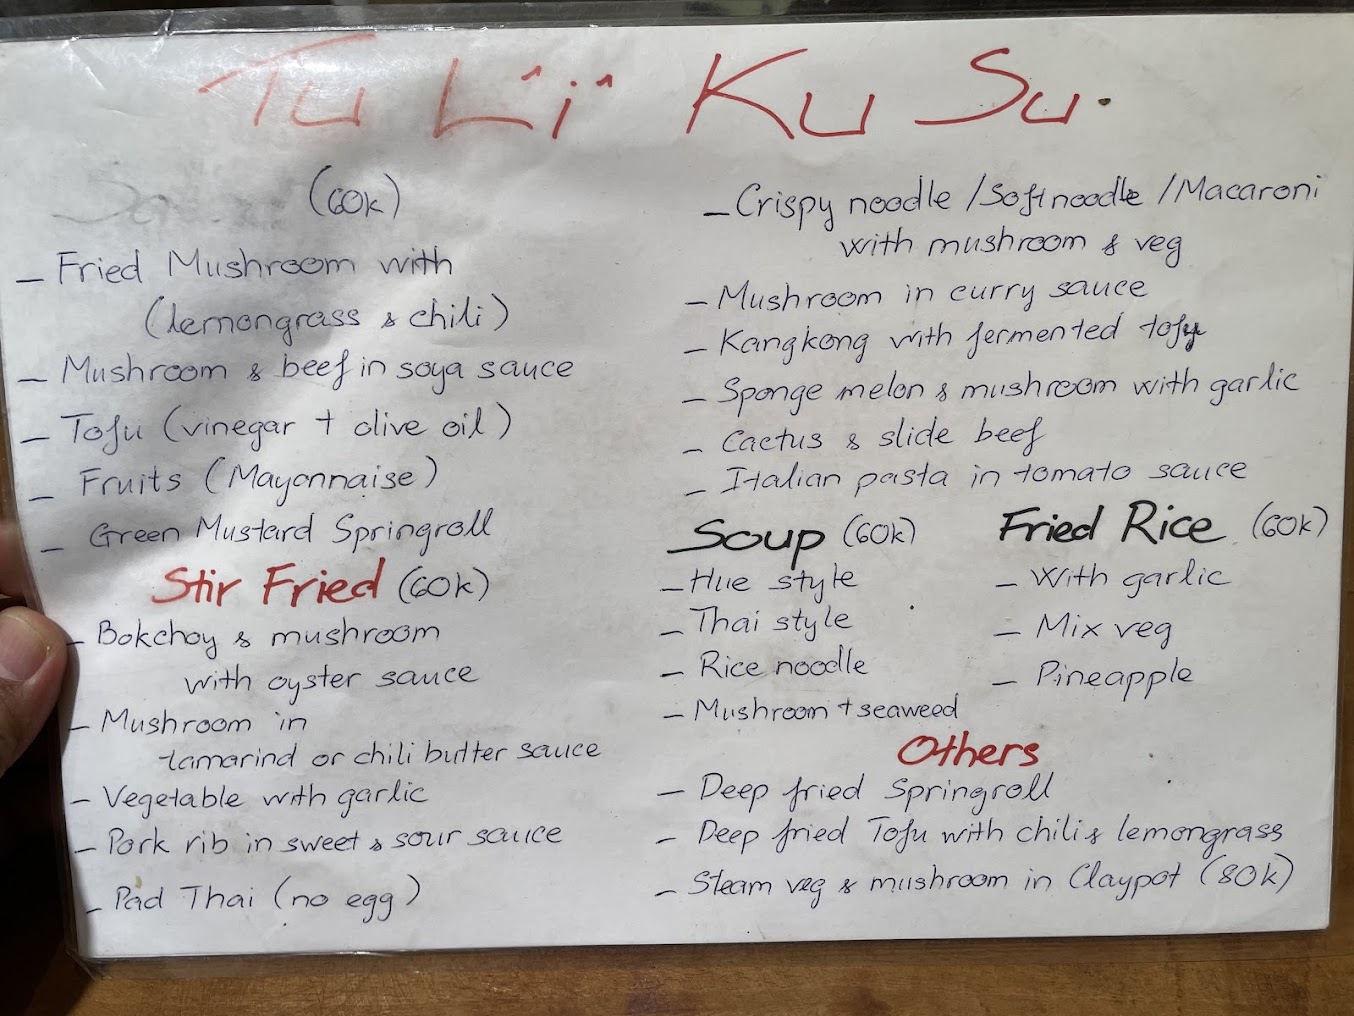 Tu Li Ku Su.
(60k)
- Fried Mushroom with
(lemongrass & chili)
- Mushroom & beef in soya sauce
- Tofu (vinegar + olive oil)
- Fruits (Mayonnaise)
- Green Mustard Springroll
Stir Fried (60k)
- Bokchoy & mushroom
with oyster sauce
- Mushroom in
tamarind or chili butter sauce
- Vegetable with garlic
- Pork rib in sweet & sour sauce
- Pad Thai (no egg)
- Crispy noodle / Soft noodle / Macaroni
with mushroom & veg
- Mushroom in curry sauce
- Kangkong with fermented tofu
- Sponge melon & mushroom with garlic
- Cactus & slide beef
- Italian pasta in tomato sauce
Soup (60k)
- Hue style
- Thai style
- Rice noodle
- Mushroom + seaweed
Fried Rice (60k)
- With garlic
- Mix veg
- Pineapple
Others
- Deep fried Springroll
- Deep fried Tofu with chili & lemongrass
- Steam veg & mushroom in Claypot (80k)